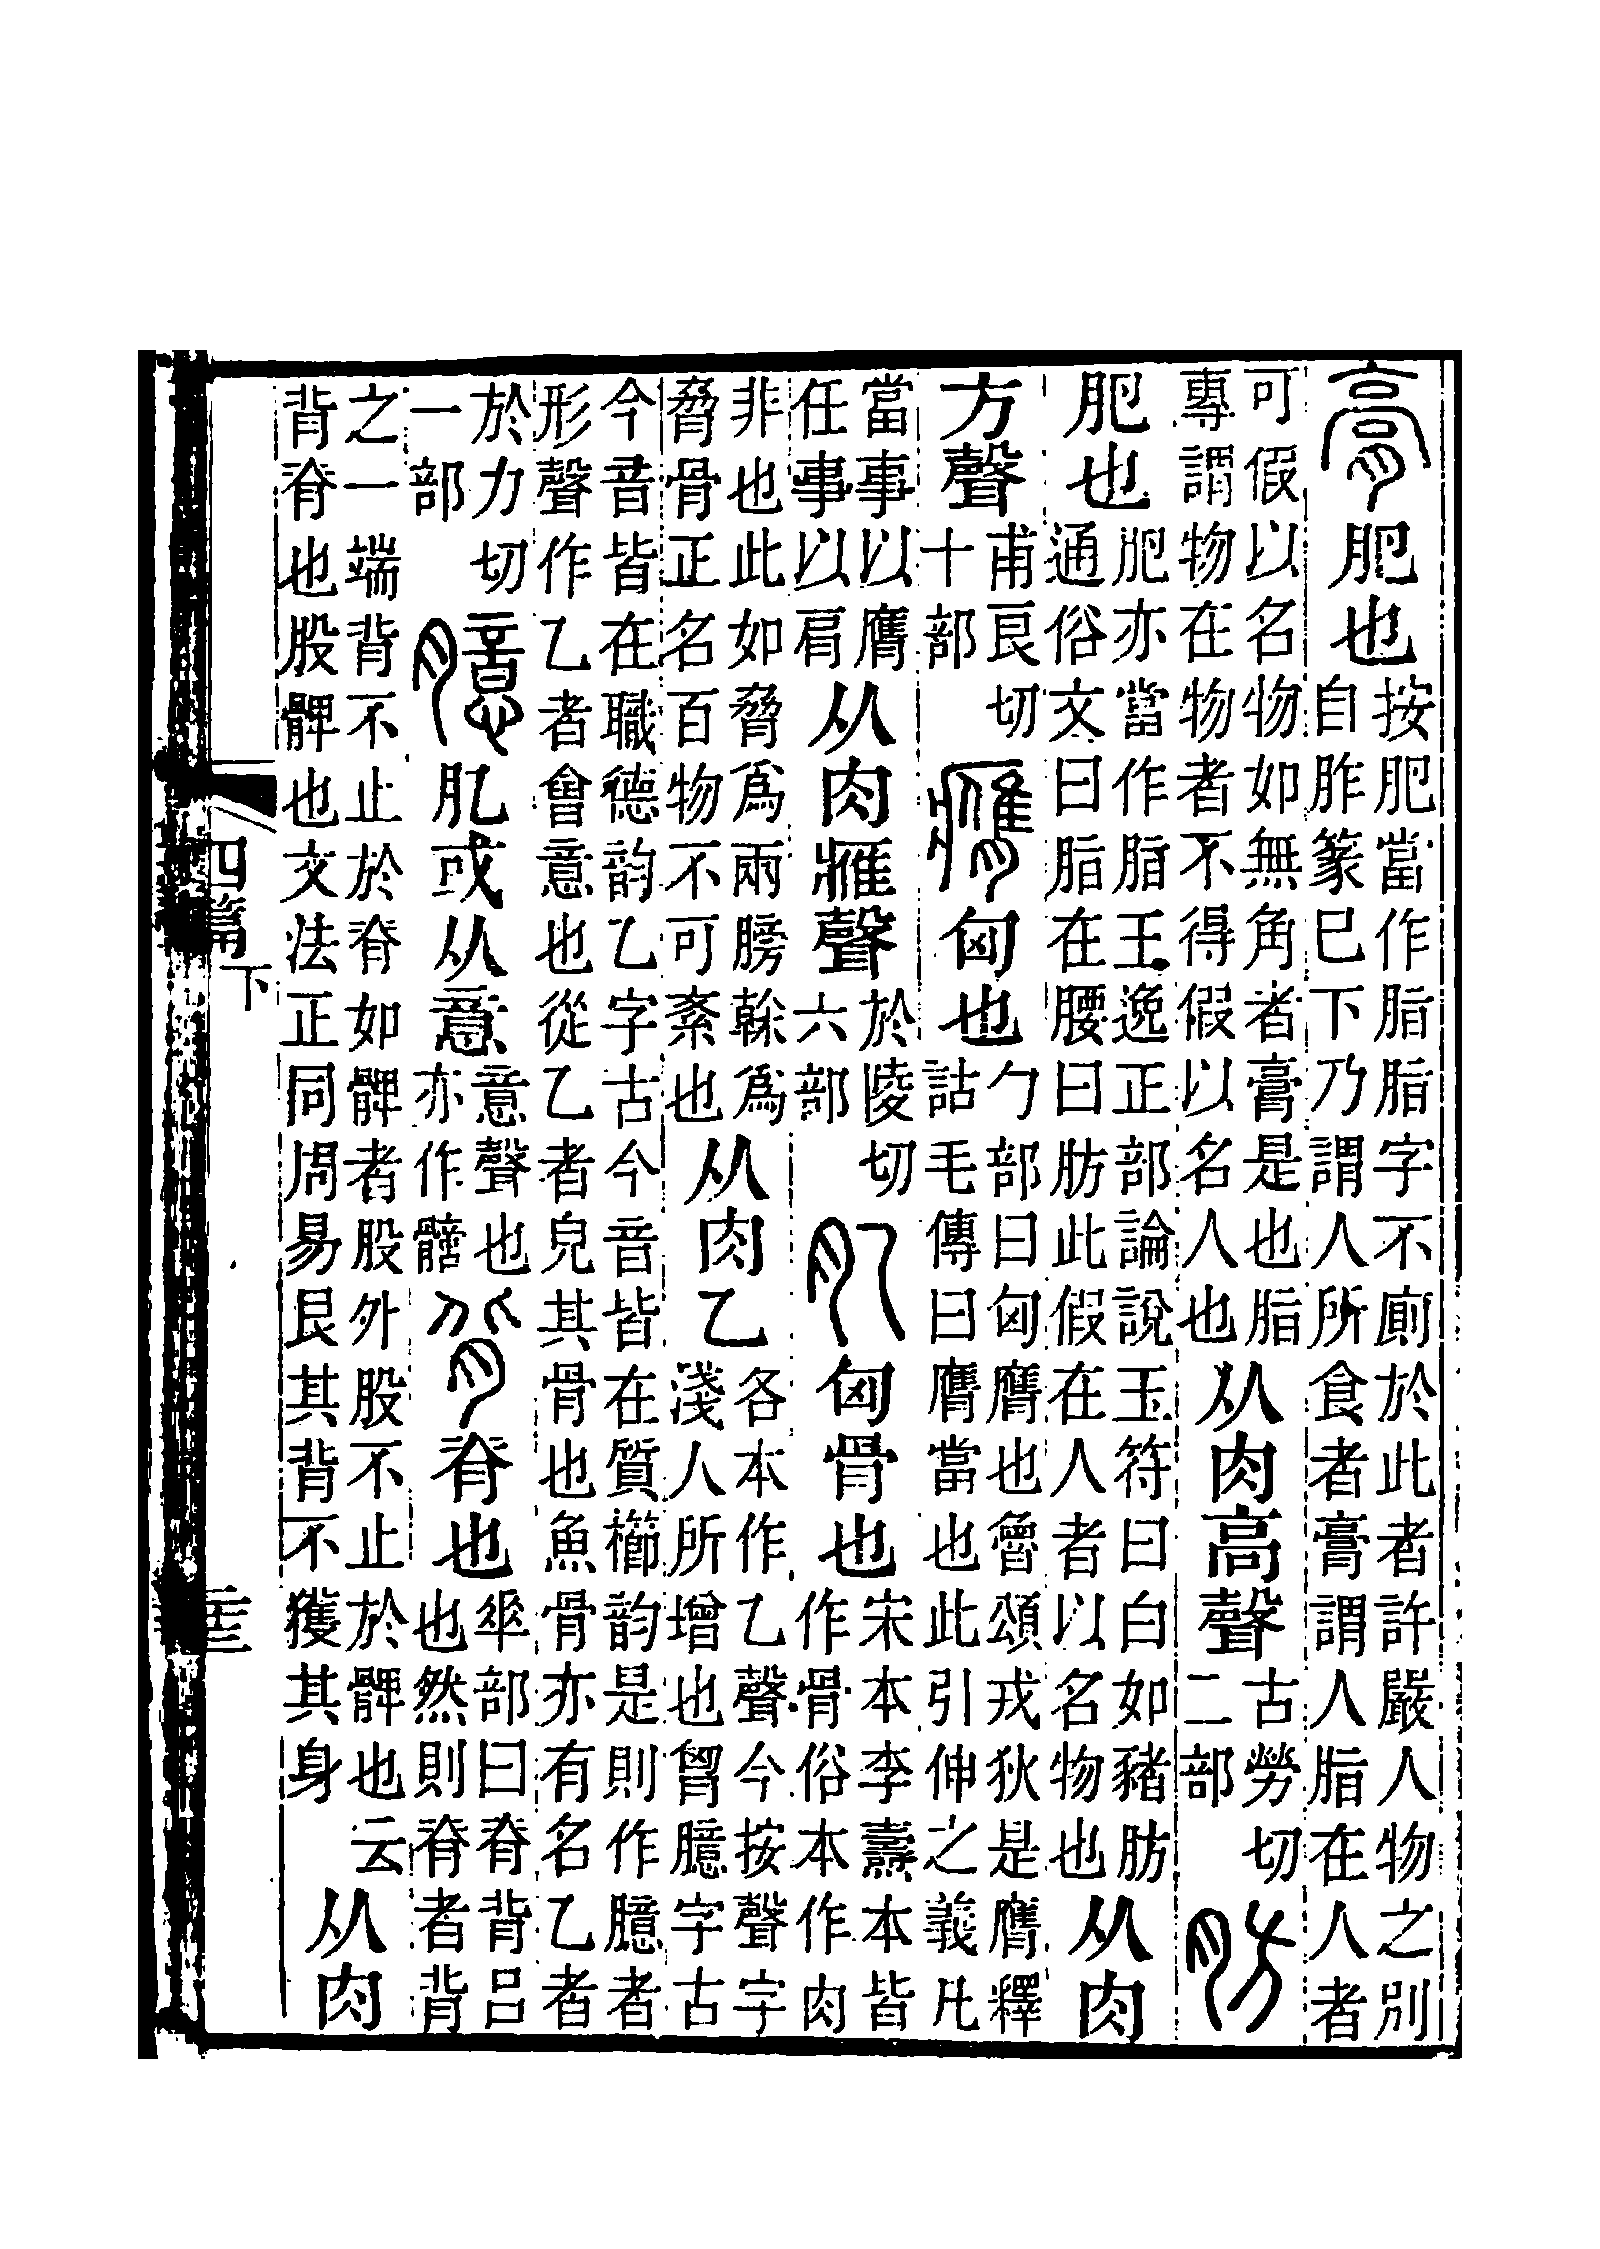 膏肥也按肥當作脂脂字不廁於此者許嚴人物之別自胙篆已下乃謂人所食者膏謂人脂在人者
可假以名物如無角者膏是也脂專謂物在物者不得假以名人也从肉高聲古勞切二部肪
肥也肥亦當作脂王逸正部論說玉符曰白如豬肪通俗文曰脂在腰曰肪此假在人者以名物也从肉
方聲甫良切十部膺匈也勹部曰匈膺也魯頌戎狄是膺釋詁毛傳曰膺當也此引伸之義凡
當事以膺任事以肩从肉雁聲於陵切六部肊匈骨也宋本李燾本皆作骨俗本作肉
非也此如脅爲兩膀榦爲脅骨正名百物不可紊也从肉乙各本作乙聲今按聲字淺人所增也胷臆字古
今音皆在職德韵乙字古今音皆在質櫛韵是則作臆者形聲作乙者會意也從乙者皃其骨也魚骨亦有名乙者
於力切一部臆肊或从意意聲也亦作背脊也𠦬部曰脊背呂也然則脊者背
之一端背不止於脊如髀者股外股不止於髀也云背脊也股髀也文法正同周易艮其背不獲其身从肉
四篇下
二十三